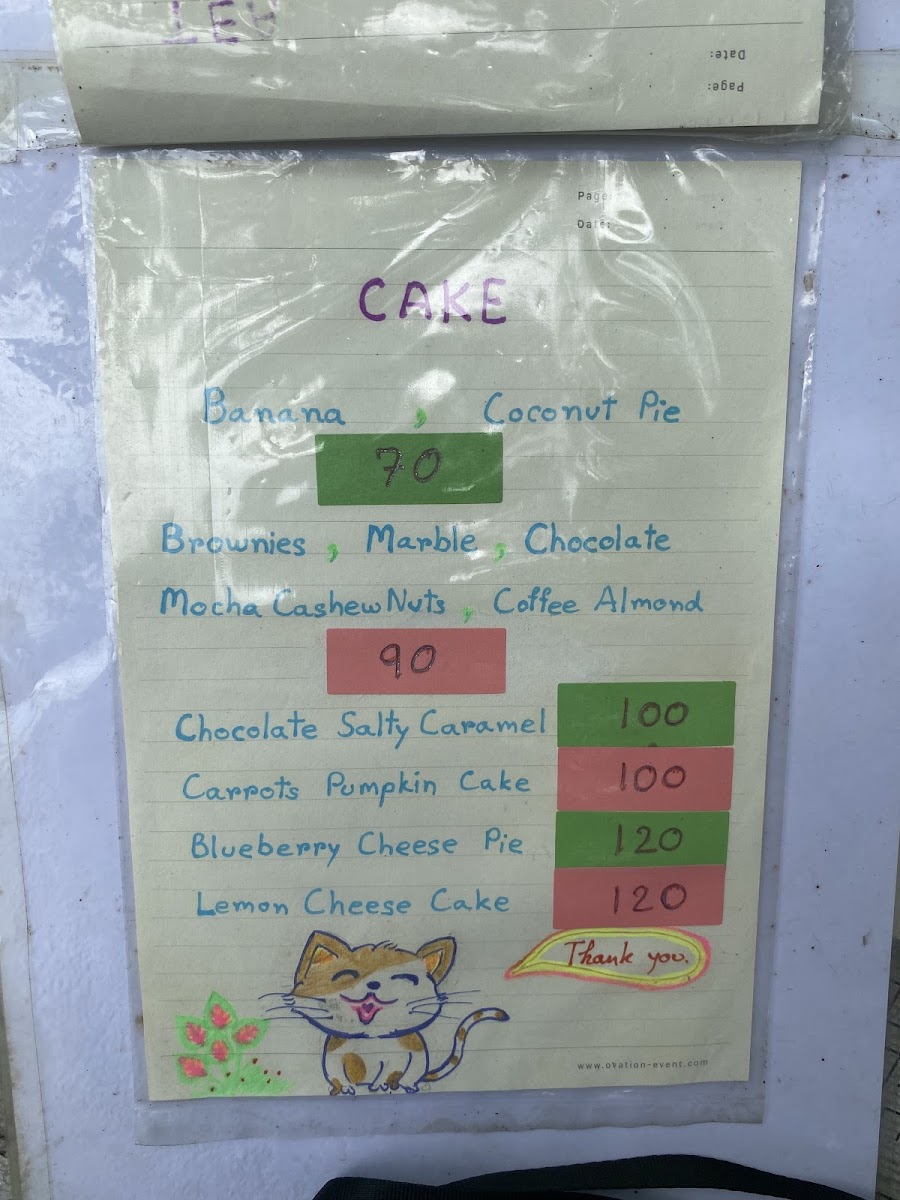 Date:
Page:
Page:
Date:
CAKE
Banana , Coconut Pie
70
Brownies , Marble , Chocolate
Mocha Cashew Nuts , Coffee Almond
90
Chocolate Salty Caramel 100
Carrots Pumpkin Cake 100
Blueberry Cheese Pie 120
Lemon Cheese Cake 120
Thank you.
www.ovation-event.com